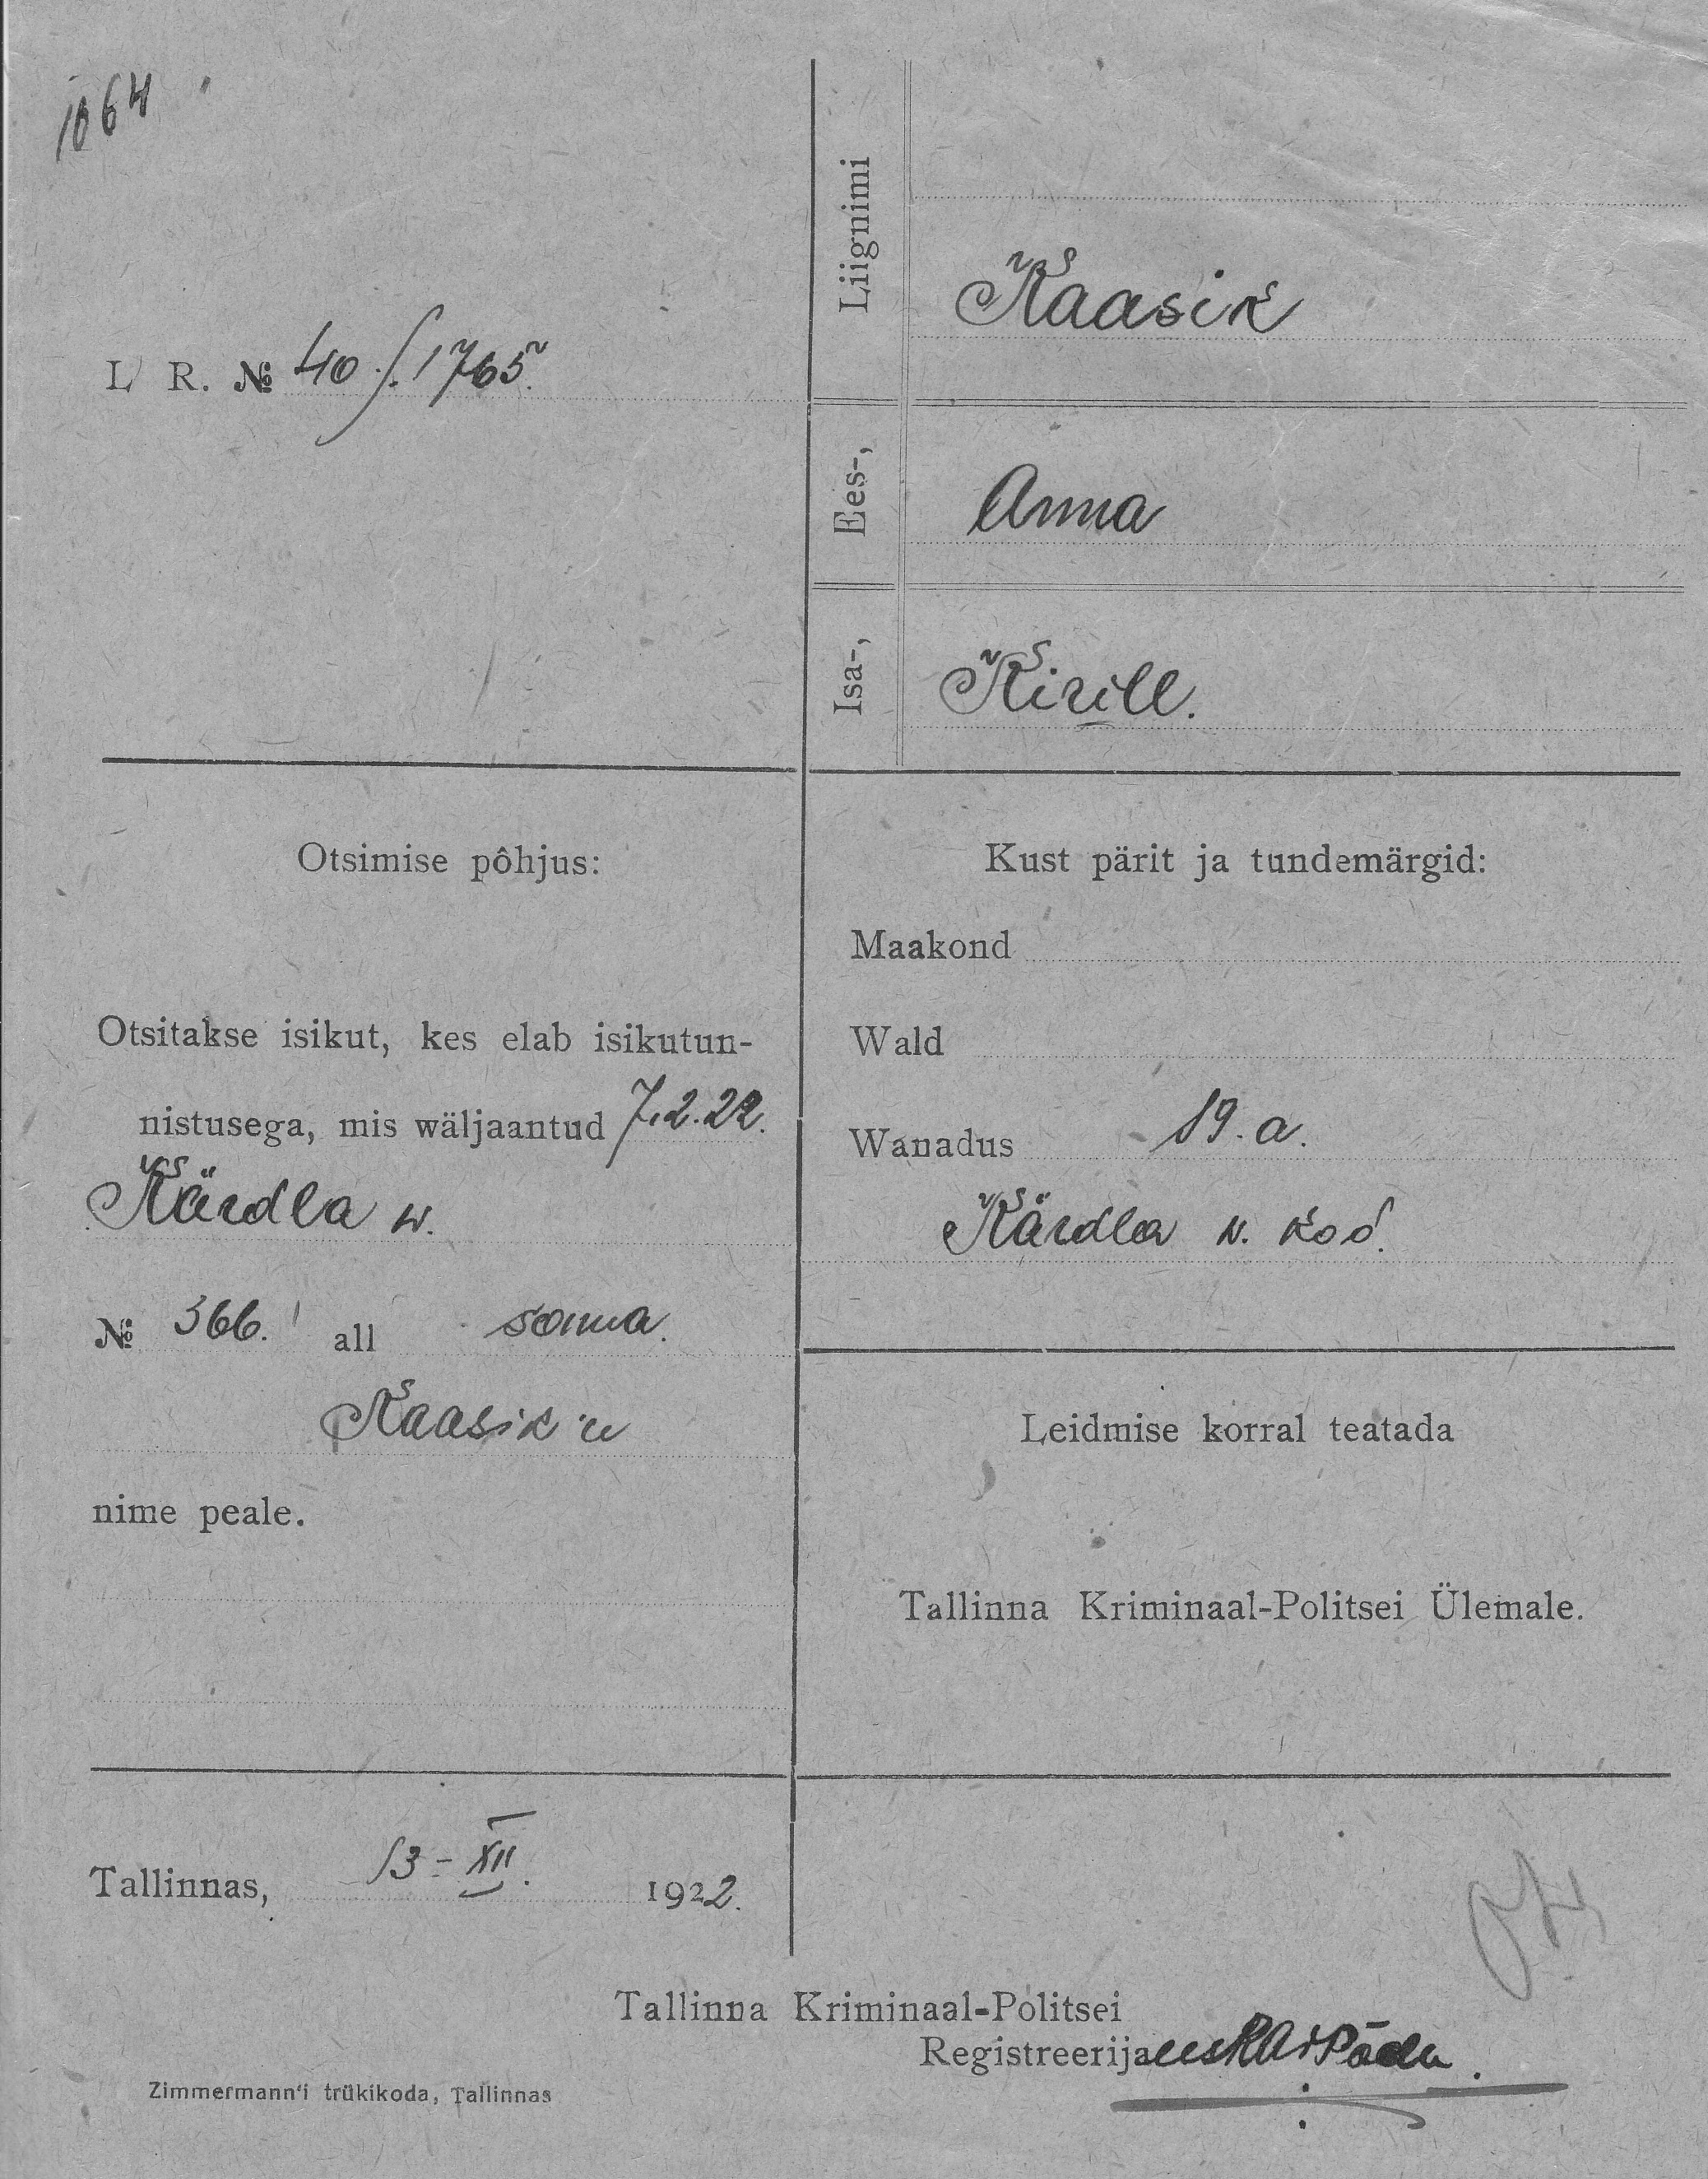 1064
L R. № 40/1765.
Liignimi
Kaasik
Ees-,
Anna
Isa-,
Kirill.
Otsimise põhjus:
Otsitakse isikut, kes elab isikutun-
nistusega, mis wäljaantud 7.2.22.
Kärdla w.
№ 366. all sama
Kaasik'u
nime peale.
Kust pärit ja tundemärgid:
Maakond
Wald
Wanadus 19. a.
Kärdla w. kod.
Leidmise korral teatada
Tallinna Kriminaal-Politsei Ülemale.
Tallinnas, 13-XII. 1922.
Tallinna Kriminaal-Politsei
Registreerija
Zimmermann'i trükikoda, Tallinnas